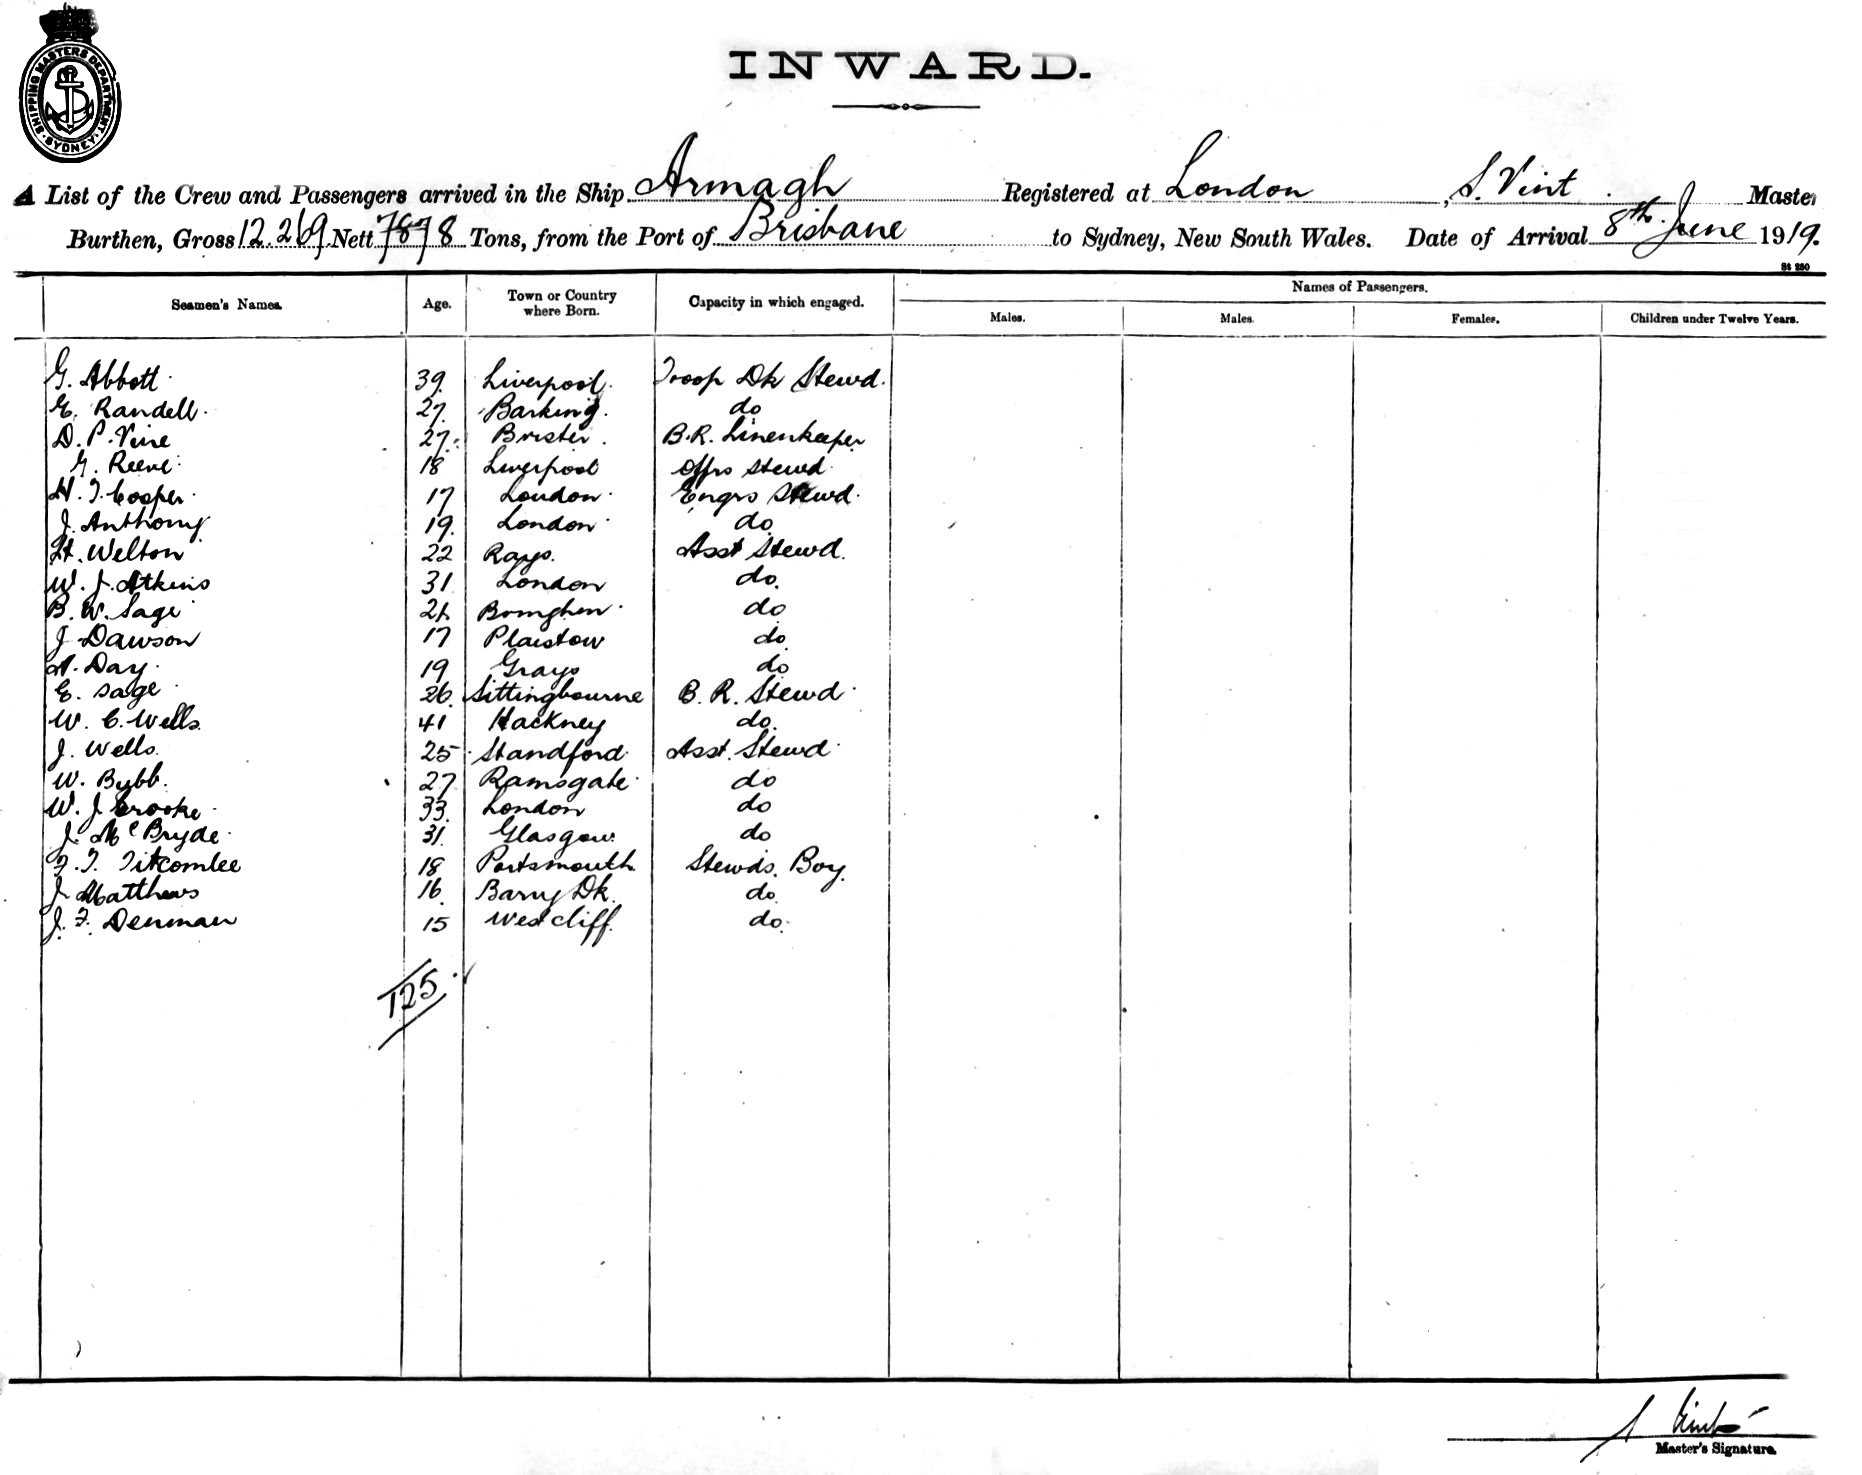 SHIPPING MASTERS DEPARTMENT SYDNEY
INWARD.
A List of the Crew and Passengers arrived in the Ship Armagh Registered at London, S. Vint Master
Burthen, Gross 12.269 Nett 7878 Tons, from the Port of Brisbane to Sydney, New South Wales. Date of Arrival 8th June 1919.
St 250
Seamen's Names. Age. Town or Country where Born. Capacity in which engaged. Names of Passengers.
Males. Males. Females. Children under Twelve Years.
G. Abbott 39 Liverpool Troop Dk Stewd.
E. Randell 27 Barking do
D. P. Vine 27 B.R. Linenkeeper
G. Reeve 18 Liverpool Offrs Stewd
H. T. Cooper 17 London Engrs Stewd
J. Anthony 19 London do
H. Welton 22 Rays Asst Stewd.
W. J. Atkins 31 London do.
B. W. Sage do
J Dawson 17 Plaistow do
A. Day 19 Grays do
E. Sage 26 Sittingbourne B. R. Stewd
W. C. Wells 41 Hackney do.
J. Wells 25 Standford Asst. Stewd
W. Bybb. 27 Ramsgate do
W. J. Crooke 33 London do
J. McBryde 31 Glasgow do
F. T. Titcomlee 18 Portsmouth Stewds. Boy.
J Matthews 16 Barry Dk. do.
J. F. Denman 15 Westcliff. do.
125
S Vint
Master's Signature.